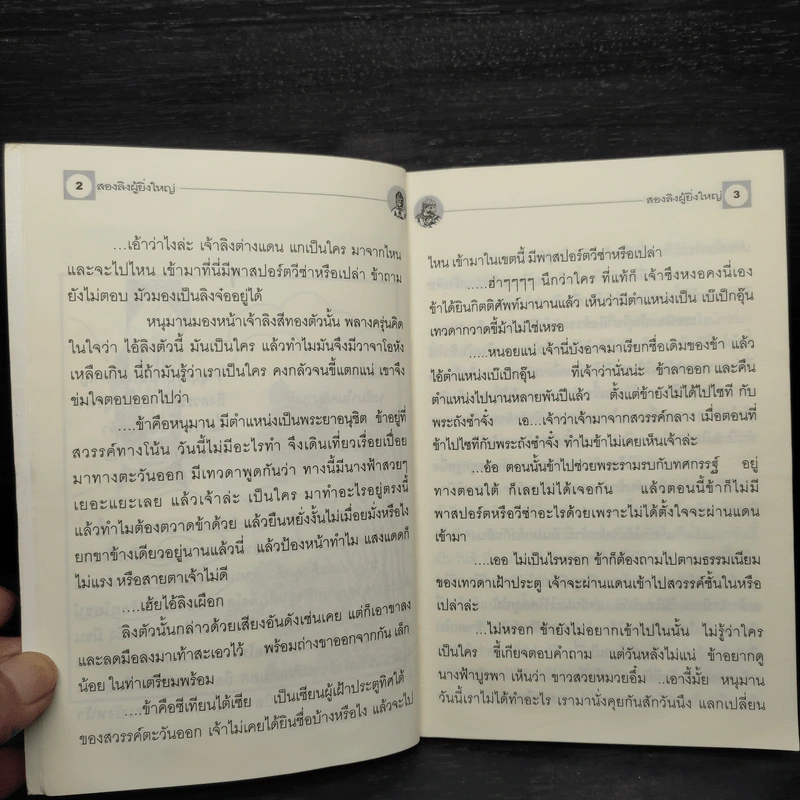 2 สองลิงผู้ยิ่งใหญ่
...เอ้าว่าไงล่ะ เจ้าลิงต่างแดน แกเป็นใคร มาจากไหน
และจะไปไหน เข้ามาที่นี่มีพาสปอร์ตวีซ่าหรือเปล่า ข้าถาม
ยังไม่ตอบ มัวมองเป็นลิงจ๋ออยู่ได้
หนุมานมองหน้าเจ้าลิงสีทองตัวนั้น พลางครุ่นคิด
ในใจว่า ไอ้ลิงตัวนี้ มันเป็นใคร แล้วทำไมมันจึงมีวาจาโอหัง
เหลือเกิน นี่ถ้ามันรู้ว่าเราเป็นใคร คงกลัวจนขี้แตกแน่ เขาจึง
ข่มใจตอบออกไปว่า
....ข้าคือหนุมาน มีตำแหน่งเป็นพระยาอนุชิต ข้าอยู่ที่
สวรรค์ทางโน้น วันนี้ไม่มีอะไรทำ จึงเดินเที่ยวเรื่อยเปื่อย
มาทางตะวันออก มีเทวดาพูดกันว่า ทางนี้มีนางฟ้าสวยๆ
เยอะแยะเลย แล้วเจ้าล่ะ เป็นใคร มาทำอะไรอยู่ตรงนี้
แล้วทำไมต้องตวาดข้าด้วย แล้วยืนหยั่งงั้นไม่เมื่อยมั่งหรือไง
ยกขาข้างเดียวอยู่นานแล้วนี่ แล้วป้องหน้าทำไม แสงแดดก็
ไม่แรง หรือสายตาเจ้าไม่ดี
....เฮ้ยไอ้ลิงเผือก
ลิงตัวนั้นกล่าวด้วยเสียงอันดังเช่นเคย แต่ก็เอาขาลง
และลดมือลงมาเท้าสะเอวไว้ พร้อมถ่างขาออกจากกัน เล็ก
น้อย ในท่าเตรียมพร้อม
....ข้าคือซีเทียนไต้เซีย เป็นเซียนผู้เฝ้าประตูทิศใต้
ของสวรรค์ตะวันออก เจ้าไม่เคยได้ยินชื่อบ้างหรือไง แล้วจะไป
สองลิงผู้ยิ่งใหญ่ 3
ไหน เข้ามาในเขตนี้ มีพาสปอร์ตวีซ่าหรือเปล่า
.....ฮ่าๆๆๆๆ นึกว่าใคร ที่แท้ก็ เจ้าซึงหงอคงนี่เอง
ข้าได้ยินกิตติศัพท์มานานแล้ว เห็นว่ามีตำแหน่งเป็น เบ๊เป็กอุ๊น
เทวดากวาดขี้ม้าไม่ใช่เหรอ
.....หนอยแน่ เจ้านี่บังอาจมาเรียกชื่อเดิมของข้า แล้ว
ไอ้ตำแหน่งเบ๊เป็กอุ๊น ที่เจ้าว่านั่นน่ะ ข้าลาออก และคืน
ตำแหน่งไปนานหลายพันปีแล้ว ตั้งแต่ข้ายังไม่ได้ไปไซที กับ
พระถังซำจั๋ง เอ...เจ้าว่าเจ้ามาจากสวรรค์กลาง เมื่อตอนที่
ข้าไปไซทีกับพระถังซำจั๋ง ทำไมข้าไม่เคยเห็นเจ้าล่ะ
...อ้อ ตอนนั้นข้าไปช่วยพระรามรบกับทศกรรฐ์ อยู่
ทางตอนใต้ ก็เลยไม่ได้เจอกัน แล้วตอนนี้ข้าก็ไม่มี
พาสปอร์ตหรือวีซ่าอะไรด้วยเพราะไม่ได้ตั้งใจจะผ่านแดน
เข้ามา
....เออ ไม่เป็นไรหรอก ข้าก็ต้องถามไปตามธรรมเนียม
ของเทวดาเฝ้าประตู เจ้าจะผ่านแดนเข้าไปสวรรค์ชั้นในหรือ
เปล่าล่ะ
...ไม่หรอก ข้ายังไม่อยากเข้าไปในนั้น ไม่รู้ว่าใคร
เป็นใคร ขี้เกียจตอบคำถาม แต่วันหลังไม่แน่ ข้าอยากดู
นางฟ้าบูรพา เห็นว่า ขาวสวยหมวยอึ๋ม ..เอางี้มั้ย หนุมาน
วันนี้เราไม่ได้ทำอะไร เรามานั่งคุยกันสักวันนึง แลกเปลี่ยน